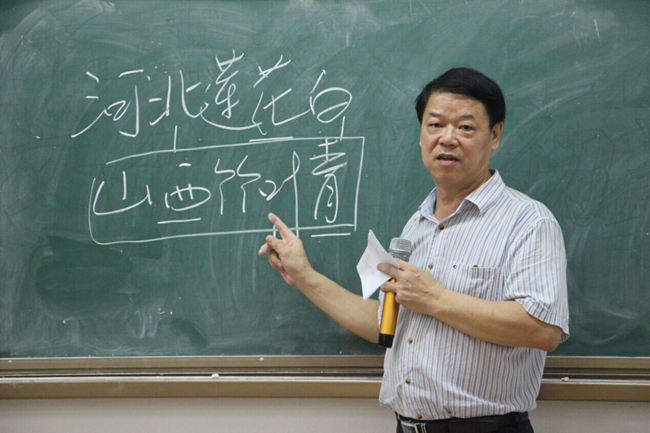 河北莲花白
山西竹叶青